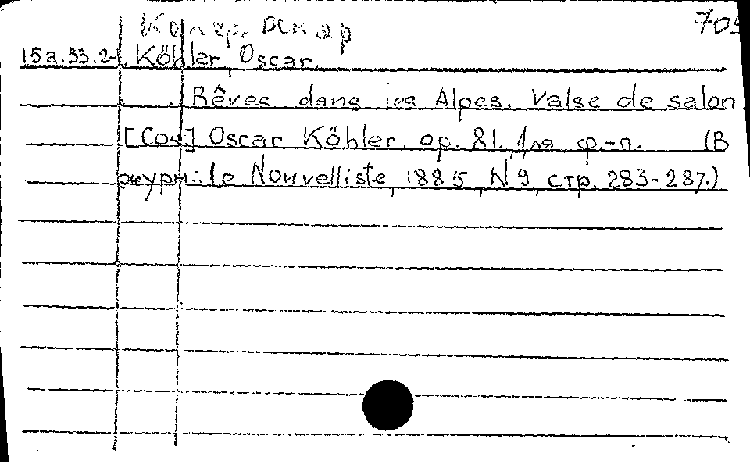 Кёлер, Оскар 705
15a.33.2 Köhler, Oscar.
Rêves dans les Alpes. Valse de salon.
[Соч] Oscar Köhler. op. 81. Для ф.-п. (В
журн.: Le Nouvelliste, 1885, N 9, стр. 283-287.)